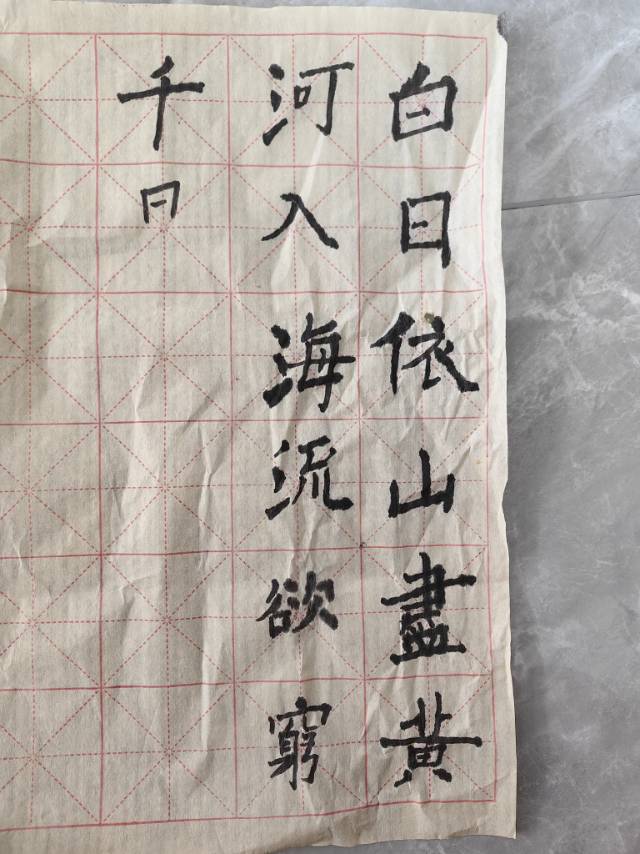 白日依山盡黃
河入海流欲窮
千日